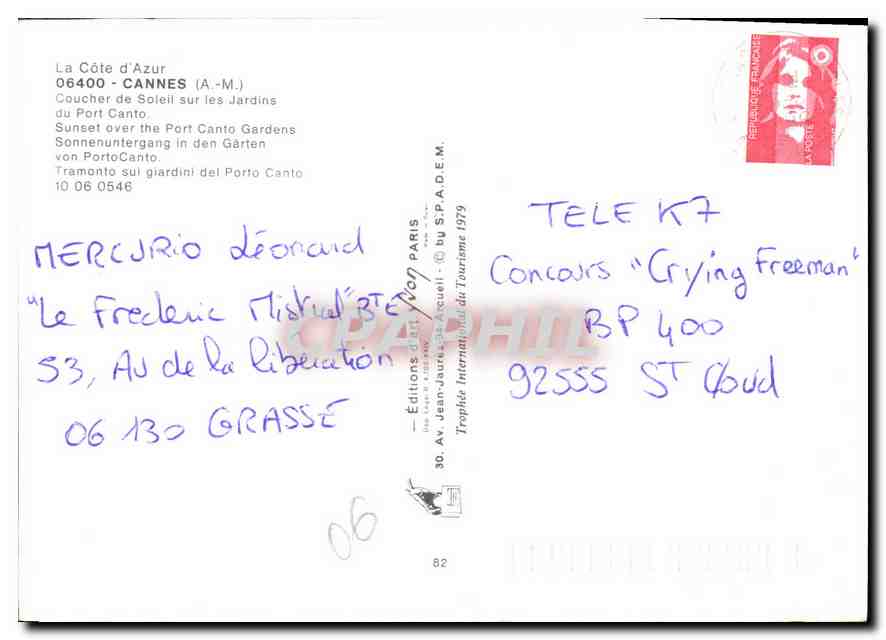 La Côte d'Azur
06400 - CANNES (A.-M.)
Coucher de Soleil sur les Jardins
du Port Canto.
Sunset over the Port Canto Gardens
Sonnenuntergang in den Gärten
von PortoCanto.
Tramonto sui giardini del Porto Canto
10 06 0546
MERCURIO Léonard
"Le Frederic Mistral" BTE
53, AV de la libération
06 130 GRASSE
06
— Éditions d'art yvon PARIS
30, Av. Jean-Jaurès - 94-Arcueil - © by S.P.A.D.E.M.
Trophée International du Tourisme 1979
82
CPAPHIL
REPUBLIQUE FRANÇAISE
LA POSTE
TELE K7
Concours "Crying Freeman"
BP 400
92555 ST Cloud